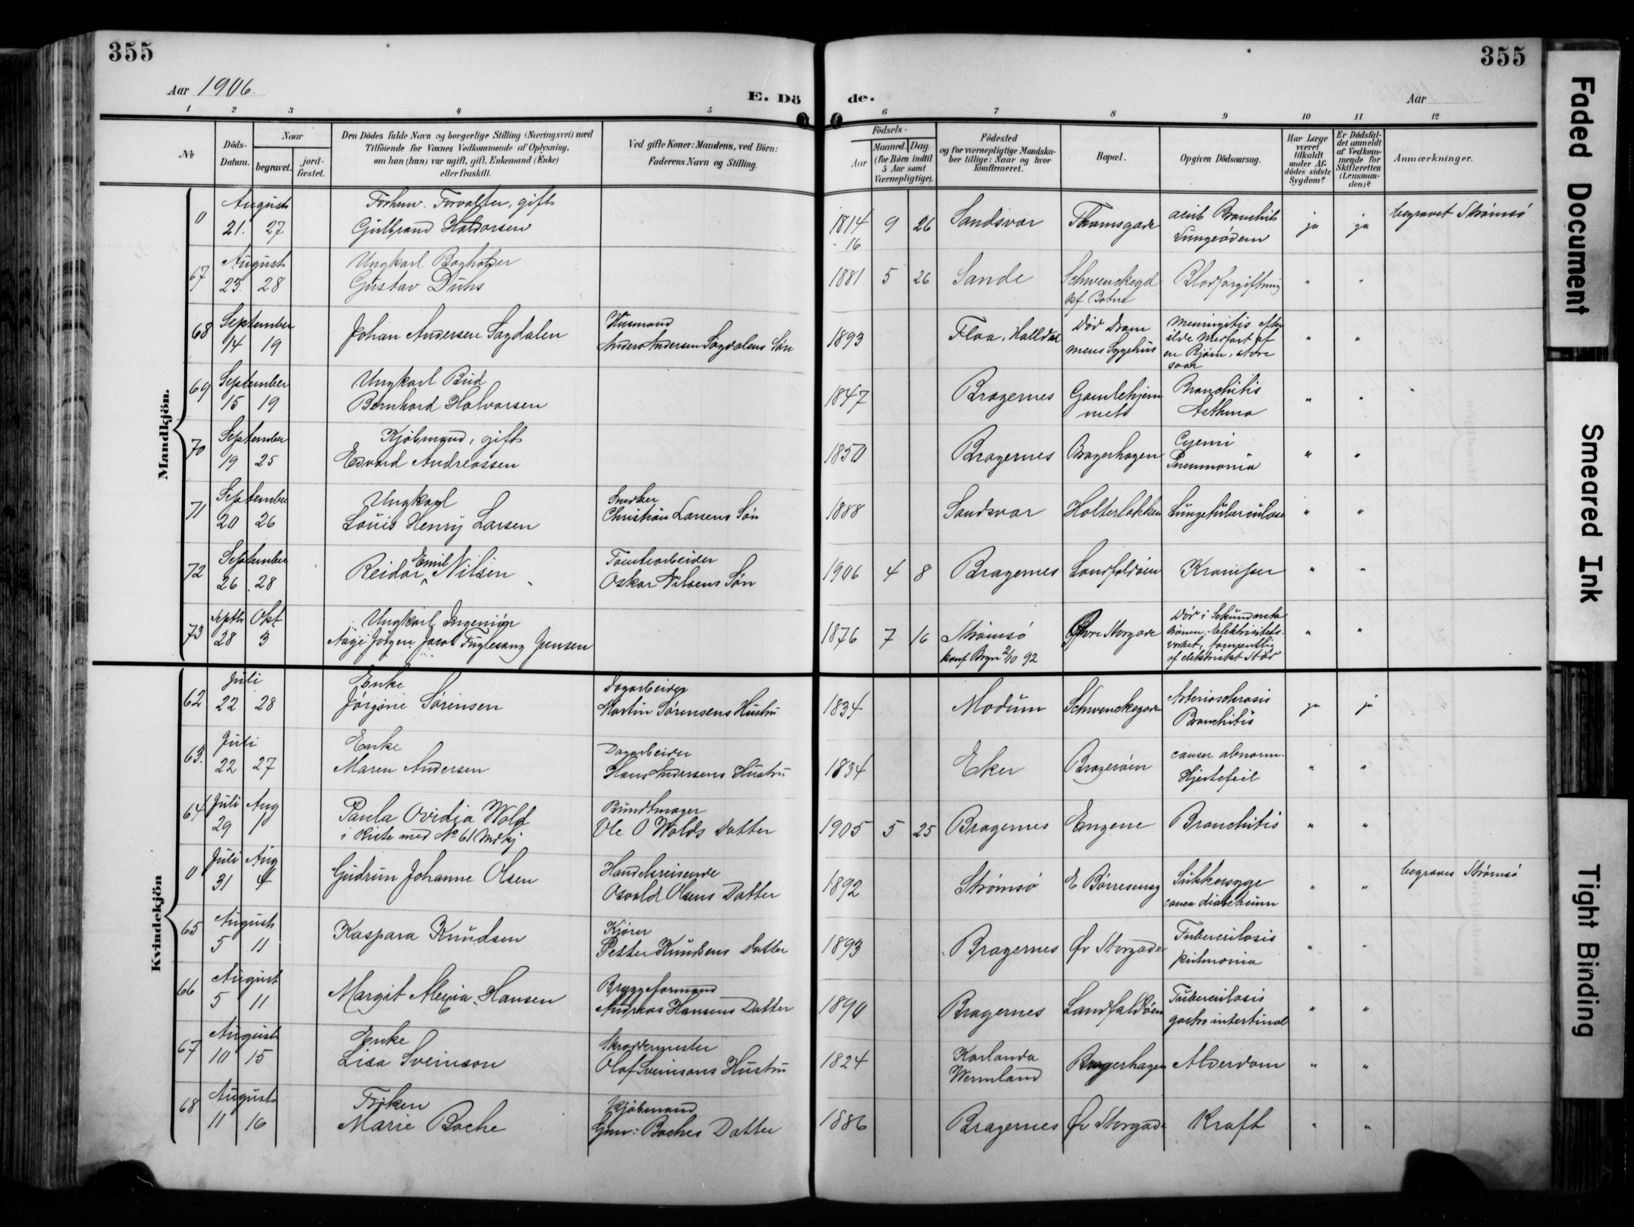 355
355
Aar 1906.
E. Dö de.
Aar
1 2 3 4 5 6 7 8 9 10 11 12
No
Döds-Datum.
Naar
begravet.
jord-fæstet.
Den Dödes fulde Navn og borgerlige Stilling (Næringsvei) med
Tilföiende for Voxnes Vedkommende af Oplysning,
om han (hun) var ugift, gift, Enkemand (Enke)
eller fraskilt.
Ved gifte Koner: Mandens, ved Börn:
Faderens Navn og Stilling.
Födsels-
Aar
Maaned. Dag.
(for Börn indtil
5 Aar samt
Værnepligtige).
Födested
og for værnepligtige Mandska-
ber tillige: Naar og hvor
konfirmeret.
Bopæl.
Opgiven Dödsaarsag.
Har Læge
været
tilkaldt
under Af-
dödes sidste
Sygdom?
Er Dödsfal-
det anmeldt
af Vedkom-
mende for
Skifteretten
(Lensman-
den)?
Anmærkninger.
Mandkjön.
0 August 21. 27 Forhenv. Forvalter, gift
Gulbrand Halvorsen 1814 9 26 Sandsvær Thomsgade acut Bronchit
16 Lungeödem ja ja begravet Strømsö
67 August 23. 28 Ungkarl Bogholder
Gustav Duhs 1881 5 26 Sande Schwenckegd
af Botne Blodforgiftning " "
68 September 14 19 Johan Andersen Sagdalen Husmand
Anders Andersen Sagdalens Søn 1893 Flaa, Halldal Död Dram
mens Sygehus Meningitis
ilde Medfart af
en Bjørn, store
saar " "
69 September 15 19 Ungkarl Bud
Bernhard Halvorsen 1847 Bragernes Gamlehjem
mets Bronchitis
Asthma " "
70 September 19 25 Kjöbmand, gift
Edvard Andreassen 1850 Bragernes Bragerhagen
Pneumonia " "
71 September 20 26 Ungkarl
Louis Henry Larsen Snedker
Christian Larsens Søn 1888 Sandsvær Holterløkken Lungetuberculose " "
72 September 26 28 Reidar Emil Nilsen Tomtearbeider
Oskar Nilsens Søn 1906 4 8 Bragernes Landfaldøen Kramper " "
73 Septbr 28 Okt 3 Ungkarl Ingeniør
Aage Jörgen Jacob Fuglesang Jensen 1876 7 16 Strømsö
konf Brgn 2/10 92 Øvre Storgade Död i Sekundærsta
tionen, Elektricitets
verket,
af elektrisk Stød " "
Kvindekjön
62 Juli 22 28 Enke
Jørgine Sørensen Dagarbeider
Martin Sørensens Hustru 1834 Modum Schwenckegaden Arteriosklerosis
Bronchitis ja ja
63. Juli 22 27 Enke
Maren Andersen Dagarbeider
Hans Andersens Hustru 1834 Eker Bragerøen causer abnorm.
Hjertefeil " "
64 Juli 29 Aug 1 Paula Ovidia Wold
i Kiste med No 61 Mdkj Bundtmager
Ole O Wolds Datter 1905 5 25 Bragernes Engene Bronchitis " "
0 Juli 31 Aug 4 Gudrun Johanne Olsen Handelsreisende
Osvald Olsens Datter 1892 Strømsö E Börresensg Sukkersyge " " begraves Strømsö
65 August 5 11 Kaspara Knudsen Kjører
Petter Knudsens Datter 1893 Bragernes Øv Storgade Tuberculosis
pulmonia " "
66 August 5 11 Margit Alexia Hansen Bryggeformand
Andreas Hansens Datter 1890 Bragernes Landfaldøen Tuberculosis
gastro intestinal " "
67 August 10 15 Enke
Lisa Sveinson Skræddermester
Olof Sveinsons Hustru 1824 Karlanda
Wermland Bragerhagen Alderdom " "
68 August 11 16 Frøken
Marie Bache Kjøbmand
Baches Datter 1886 Bragernes Øv Storgade Kræft " "
Faded Document
Smeared Ink
Tight Binding